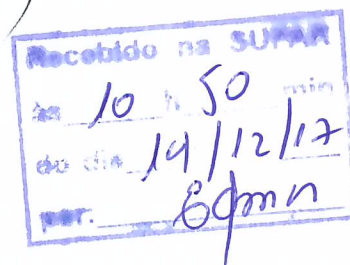 Recebido na SUPAR
às 10 h 50 min
do dia 19/12/17
por.